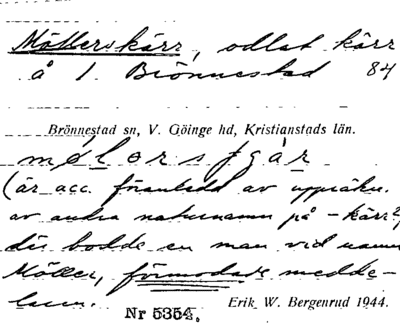 Möllerskärr, odlat kärr
å 1 Brönnestad 84
Brönnestad sn, V. Göinge hd, Kristianstads län.
mølorsfgár
(är acc. föranledd av uppräkn.
av andra naturnamn på -kärr?)
där bodde en man vid namn
Möller, förmodade medde-
laren.
Nr 5354. Erik W. Bergenrud 1944.